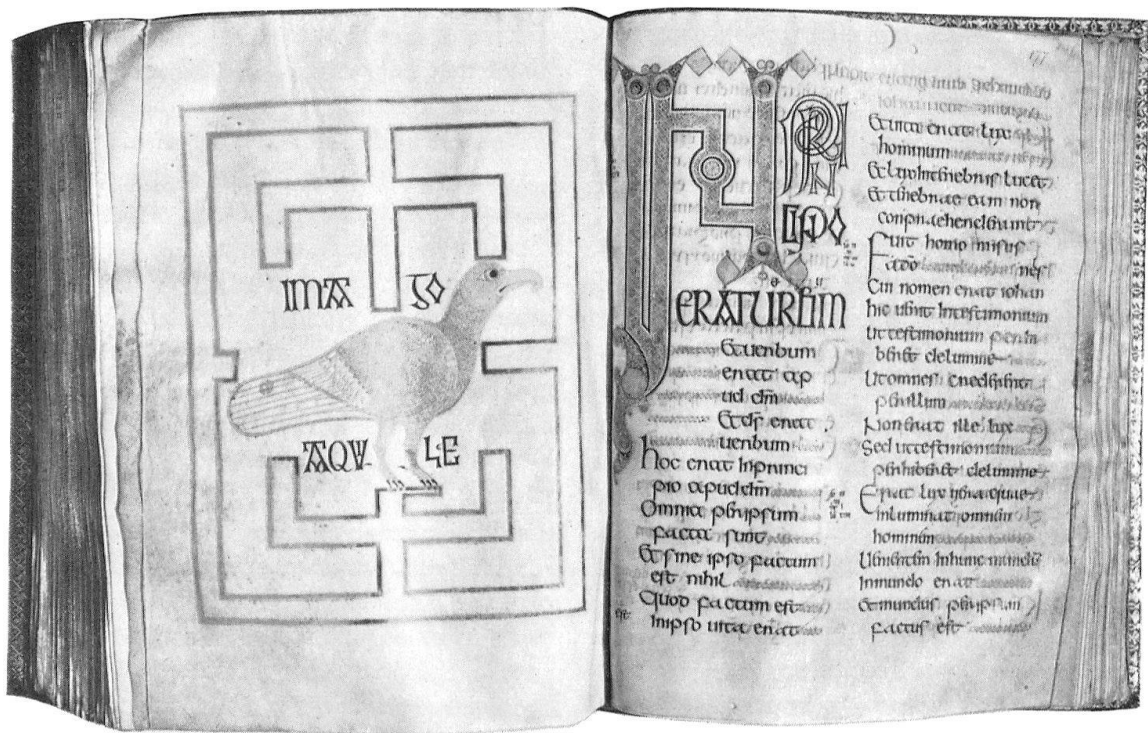 IMA GO
AQUI LE
177
IN PRIN
CIPIO
ERATUERBUM
Et uerbum
erat ap
ud dm̄
Et dS̄ erat
uerbum
hoc erat in princi
pio apud dm̄
Omnia per ipsum
facta sunt
Et sine ipso factum
est nihil
Quod factum est
In ipso uita erat
Et uita erat lux
hominum
Et lux in tenebris lucet
Et tenebrae eam non
conpraehenderunt
Fuit homo misus
a dō nes
Cui nomen erat iohan
hic uenit in testimonium
Ut testimonium perhi
beret de lumine
Ut omnes crederent
per illum
Non erat ille lux
Sed ut testimonium
perhiberet de lumine
Erat lux uera quae
inluminat omnem
hominem
Uenientem in hunc mundū
In mundo erat
Et mundus per ipsum
factus est